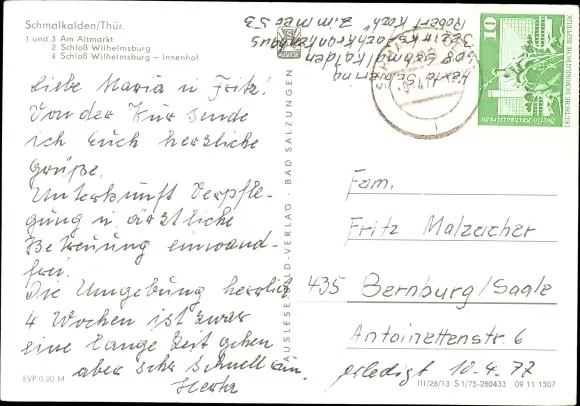 Schmalkalden/Thür.
1 und 3 Am Altmarkt
2 Schloß Wilhelmsburg
4 Schloß Wilhelmsburg – Innenhof
Liebe Maria u Fritz!
Von der Kur sende
ich Euch herzliche
Grüße.
Unterkunft Verpfle-
gung u. ärztliche
Betreuung einwand-
frei.
Die Umgebung herrlich
4 Wochen ist zwar
eine lange Zeit gehen
aber sehr schnell
Herta
EVP 0.20 M
AUSLESE-BILD-VERLAG - BAD SALZUNGEN
Herta
608 Schmalkalden
Bezirksfachkrankenhaus
"Robert Koch" Zimmer 53
10
DEUTSCHE DEMOKRATISCHE REPUBLIK
Berlin, Rathausstraße
Fam.
Fritz Malzacher
435 Bernburg/Saale
Antoinettenstr. 6
erledigt 10.4.77
III/26/13 S 1/75-280433 09 11 1507